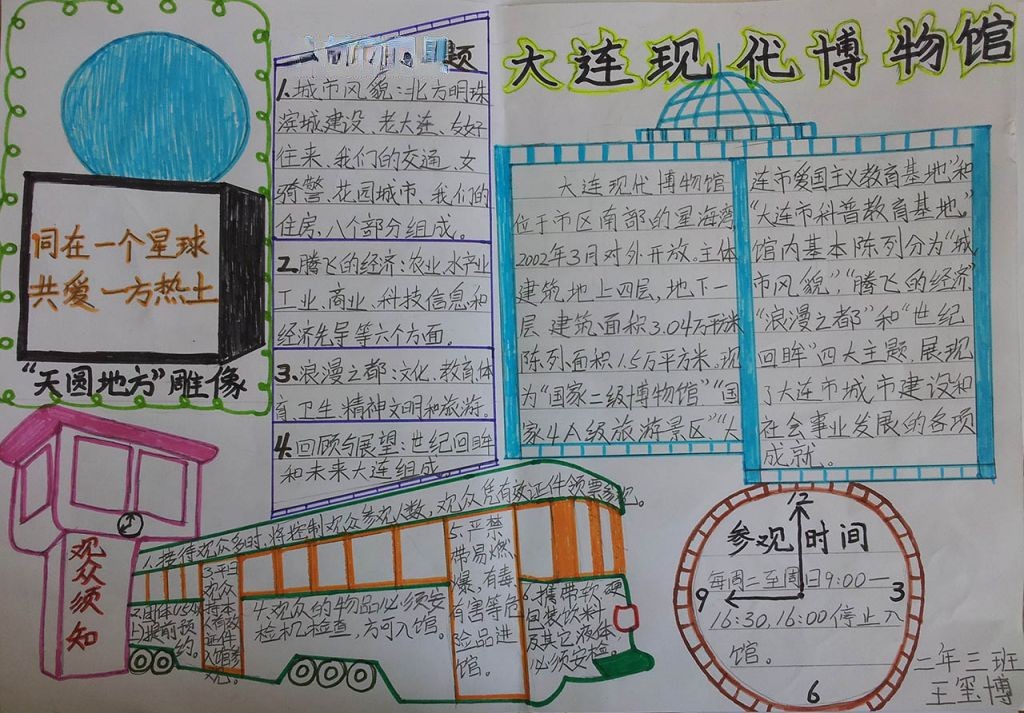 大连现代博物馆
同在一个星球
共爱一方热土
“天圆地方”雕像
题
1.城市风貌：北方明珠
滨城建设、老大连、友好
往来、我们的交通、女
骑警、花园城市、我们的
住房、八个部分组成。
2.腾飞的经济：农业、水产业
工业、商业、科技信息和
经济先导等六个方面。
3.浪漫之都：文化、教育体
育、卫生、精神文明和旅游。
4.回顾与展望：世纪回眸
和未来大连组成
大连现代博物馆
位于市区南部的星海湾
2002年3月对外开放。主体
建筑地上四层，地下一
层 建筑面积3.04万平方米
陈列面积1.5万平方米、现
为“国家二级博物馆”“国
家4A级旅游景区”“大
连市爱国主义教育基地”和
“大连市科普教育基地。”
馆内基本陈列分为“城
市风貌”，“腾飞的经济”
“浪漫之都”和“世纪
回眸”四大主题、展现
了大连市城市建设和
社会事业发展的各项
成就。
观众须知
1.接待观众多时，将控制观众参观人数，观众凭有效证件领票参观。
上)提前预
约。
3.平日
观众
持本
人有效
证件
入馆参
观。
4.观众的物品必须安
检机检查，方可入馆。
5.严禁
带易燃
爆，有毒
有害等危
险品进
馆。
6.携带软、硬
包装饮料
及其它液体
必须安检。
12
参观时间
每周二至周日9:00—
9
3
16:30，16:00停止入
馆。
6
二年三班
王玺博